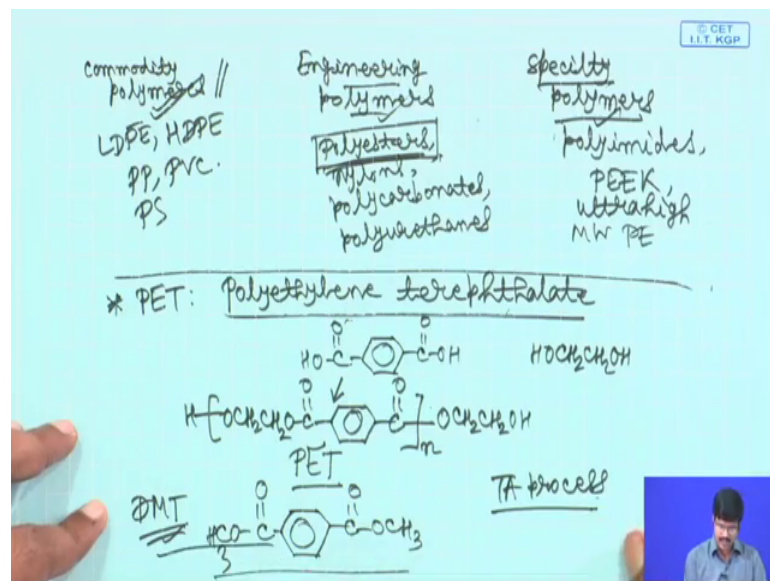 © CET
I.I.T. KGP
commodity
polymers
LDPE, HDPE
PP, PVC.
PS
Engineering
polymers
Polyesters,
Nylons,
polycarbonates,
polyurethanes
specilty
polymers
polyimides,
PEEK,
ultrahigh
MW PE
* PET: Polyethylene terephthalate
O O
HO-C C-OH HOCH₂CH₂OH
O O
H-[OCH₂CH₂O-C C-]n OCH₂CH₂OH
PET
TA process
DMT
O O
H₃CO-C C-OCH₃